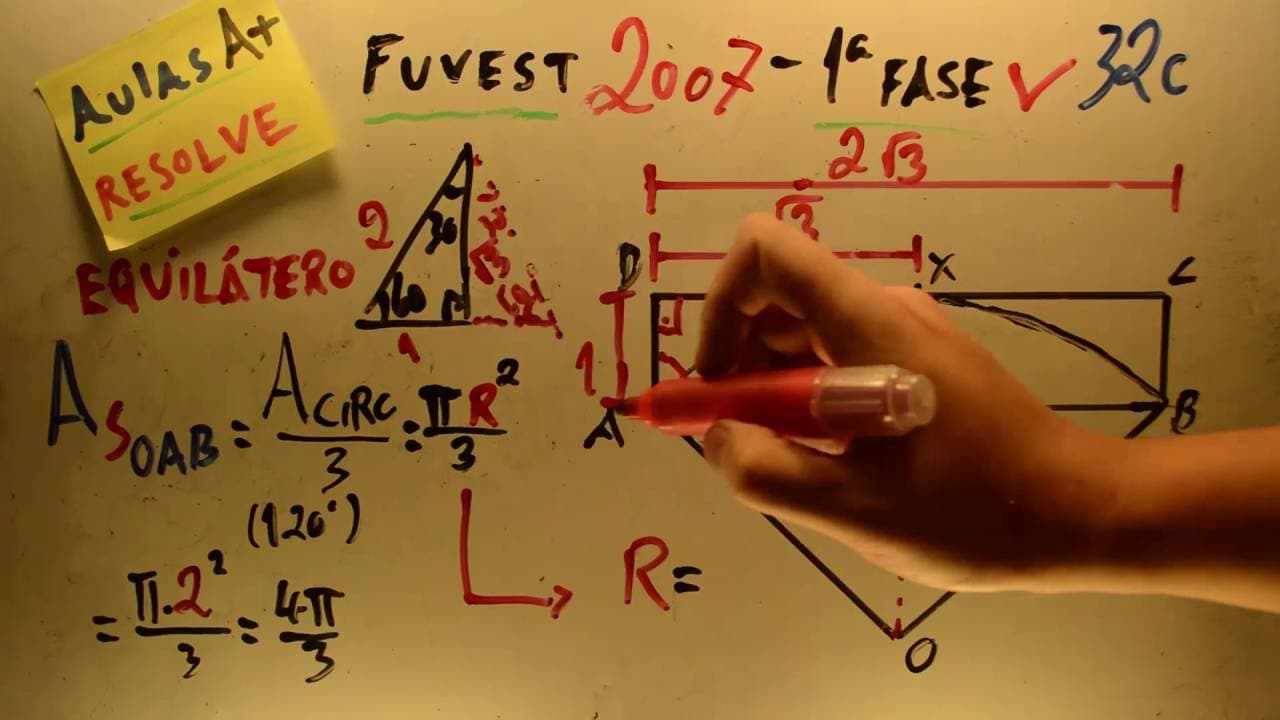 Aulas A+
RESOLVE
FUVEST 2007 - 1ª FASE ✓ 32c
2√3
√3
D
X
C
EQUILÁTERO
2
30
60
√3
1
1
A
B
A S OAB = A CIRC / 3 = π R² / 3
(120°)
= π.2² / 3 = 4.π / 3
R =
O